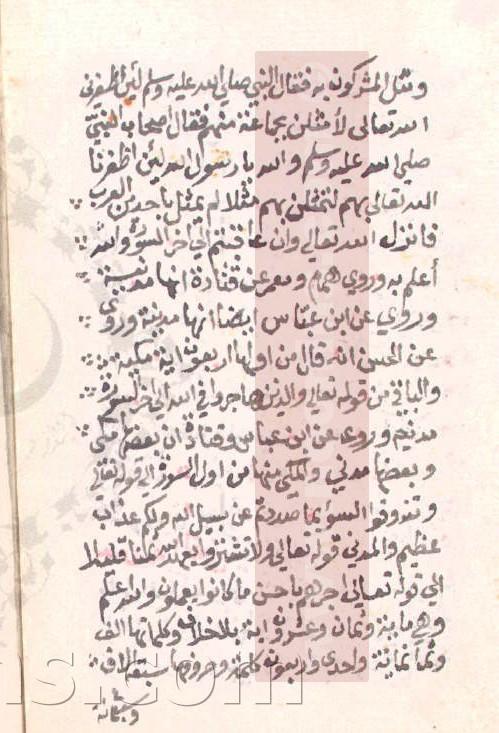 ومثل المشركون به فقال النبي صلي الله عليه وسلم لئن اظفرني
الله تعالى لأمثلن بجماعة منهم فقال اصحاب النبي
صلي الله عليه وسلم والله يا رسول الله لئن اظفرنا
الله تعالي بهم لنمثلن بهم مثلا لم يمثل باحد من العرب
فانزل الله تعالي وان عاقبتم الي اخر السورة والله
أعلم به وروي همام ومعمر عن قتادة انها مدنية
وروي عن ابن عباس ايضا انها مدينة وروي
عن الحسن انه قال من اولها اربعون اية مكية
والباقي من قوله تعالي والذين هاجروا في الله الي اخر السورة
مدنية وروي عن ابن عباس وقتادة ان بعضها مكي
وبعضها مدني والمكي منها من اول السورة الي قوله تعالي
وتذوقوا السوء بما صددتم عن سبيل الله ولكم عذاب
عظيم والمدني قوله تعالي ولا تشتروا بعهد الله ثمنا قليلا
الي قوله تعالي اجرهم باحسن ما كانوا يعملون والله اعلم
وهي ماية وثمان وعشرون اية بلا خلاف وكلماتها الف
وثمانمائة واحدى واربعون كلمة وحروفها ستة الاف
وسبعمائة
ns.com